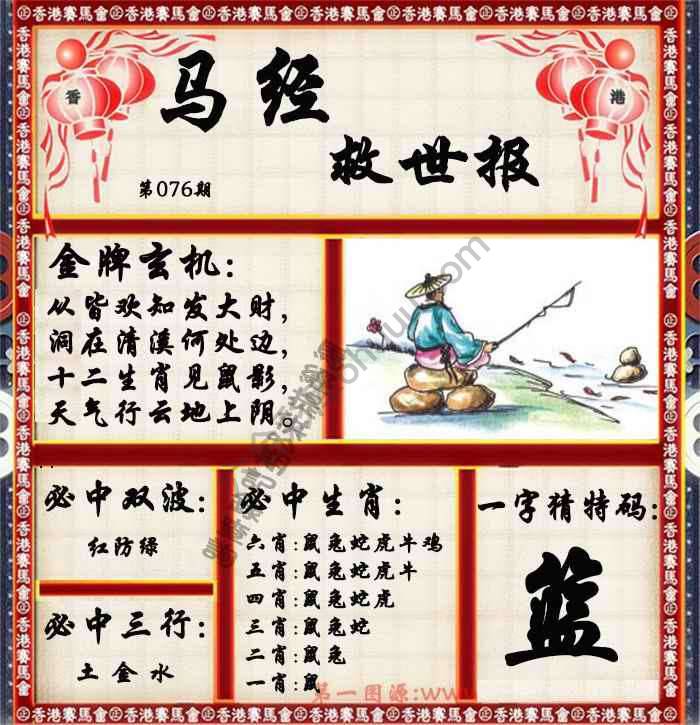 香港賽馬會
香
港
马经
救世报
第076期
金牌玄机:
从皆欢知发大财,
洞在清溪何处边,
十二生肖见鼠影,
天气行云地上阴。
必中双波:
红防绿
必中三行:
土金水
必中生肖:
六肖:鼠兔蛇虎牛鸡
五肖:鼠兔蛇虎牛
四肖:鼠兔蛇虎
三肖:鼠兔蛇
二肖:鼠兔
一肖:鼠
一字猜特码:
蓝
第一图源:www